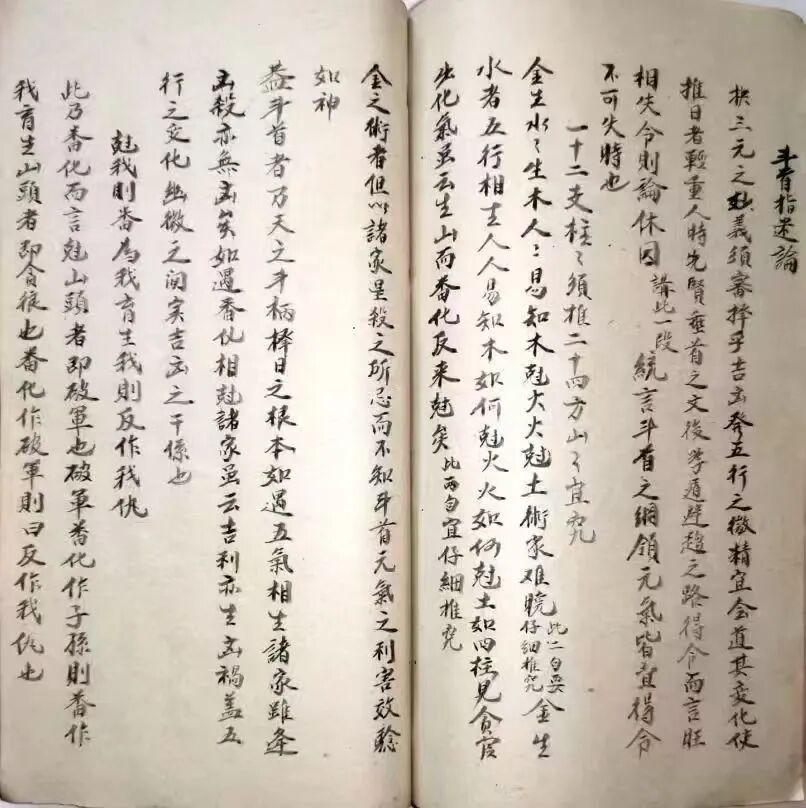 斗首指迷論
择三元之尅義須審择乎吉凶發五行之微精宜会道其变化使
推日者輕重人時先賢垂首之文後学遁避趋之路得令而言旺
相失令則論休囚講此一段統言斗首之綱領元氣皆宜得令
不可失時也
一十二支柱〻須推二十四方山〻宜究
金生水〻生木人〻易知木尅火火尅土術家难曉此二句要仔細推究金生
水者五行相生人人易知木如何尅火火如何尅土如四柱見貪官
生化氣虽云生山而番化反来尅矣此两句宜仔細推究
金之術者但以諸家星殺之所忌而不知斗首元氣之利害效驗
如神
蓋斗首者乃天之斗柄择日之根本如遇五氣相生諸家雖逢
凶殺亦無凶矣如遇番仇相尅諸家虽云吉利亦生凶禍盖五
行之变化幽微之関実吉凶之干係也
尅我則番為我育生我則反作我仇
此乃番化而言尅山頭者即破軍也破軍番化作子孫則番作
我育生山頭者即貪狼也番化作破軍則曰反作我仇也